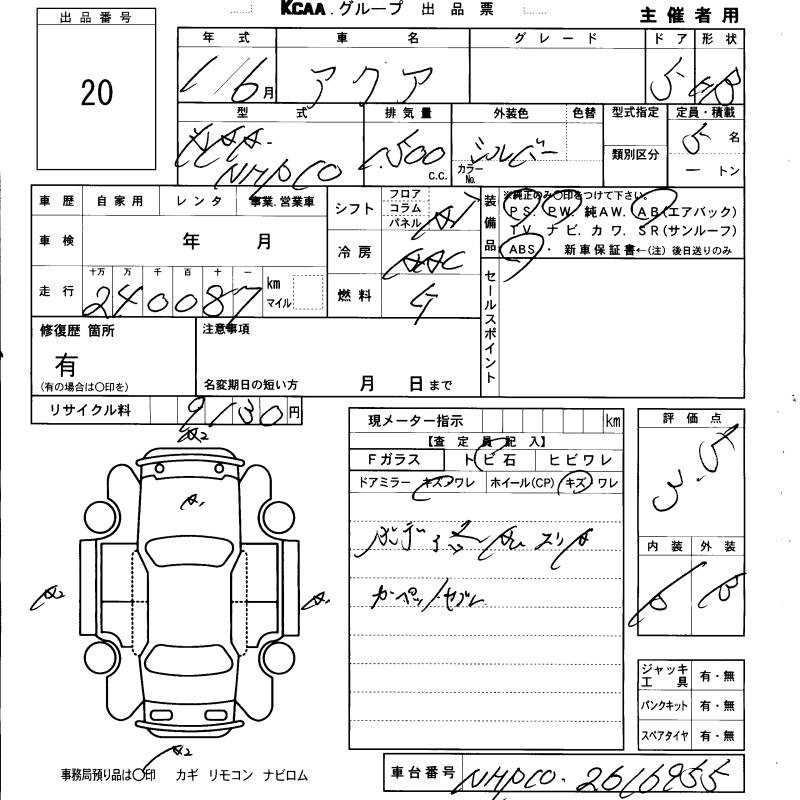 出品番号
20
KCAA.グループ 出品票
主催者用
年式 車名 グレード ドア 形状
1/6月 アクア 5 HB
型式 排気量 外装色 色替 型式指定 定員・積載
NHP10 1,500 c.c. シルバー カラーNo. 類別区分 5名
ートン
車歴 自家用 レンタ 事業.営業車
シフト フロア コラム パネル
車検 年 月
冷房 AAC
走行 十万 万 千 百 十 一
240087 km マイル
燃料 ガ
装備品
※純正のみ○印をつけて下さい。
PS. PW. 純AW. AB(エアバック)
TV. ナビ. カワ. SR(サンルーフ)
ABS・ 新車保証書←(注) 後日送りのみ
セールスポイント
修復歴 箇所
有
(有の場合は○印を)
注意事項
名変期日の短い方 月 日まで
リサイクル料 9130円
現メーター指示 km
【査定員記入】
Fガラス トビ石 ヒビワレ
ドアミラー キズ・ワレ ホイール(CP) キズ ワレ
カーペット/ヨゴレ
評価点
3.5
内装 外装
B
A2
A1
A2
A1
A2
ジャッキ工具 有・無
パンクキット 有・無
スペアタイヤ 有・無
事務局預り品は○印 カギ リモコン ナビロム
車台番号 NHP10-2616955